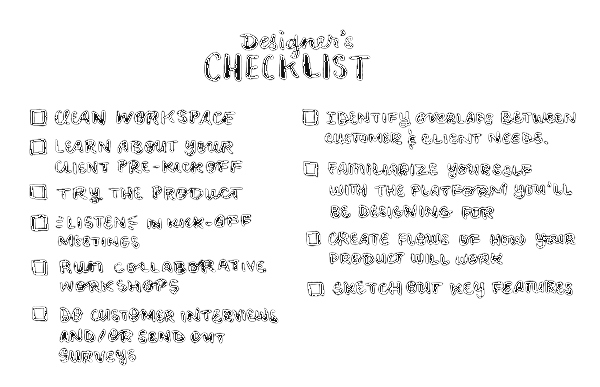 Designer's
CHECKLIST
CLEAN WORKSPACE
LEARN ABOUT YOUR
CLIENT PRE-KICKOFF
TRY THE PRODUCT
LISTEN IN KICK-OFF
MEETINGS
RUN COLLABORATIVE
WORKSHOPS
DO CUSTOMER INTERVIEWS
AND/OR SEND OUT
SURVEYS
IDENTIFY OVERLAPS BETWEEN
CUSTOMER & CLIENT NEEDS.
FAMILIARIZE YOURSELF
WITH THE PLATFORM YOU'LL
BE DESIGNING FOR
CREATE FLOWS OF HOW YOUR
PRODUCT WILL WORK
SKETCH OUT KEY FEATURES